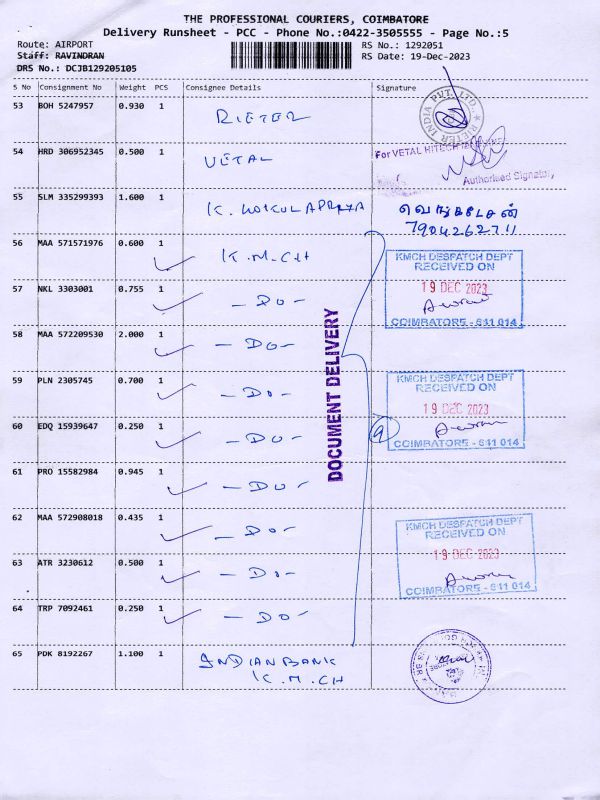 THE PROFESSIONAL COURIERS, COIMBATORE
Delivery Runsheet - PCC - Phone No.:0422-3505555 - Page No.:5
Route: AIRPORT RS No.: 1292051
Staff: RAVINDRAN RS Date: 19-Dec-2023
DRS No.: DCJB129205105
S No Consignment No Weight PCS Consignee Details Signature
53 BOH 5247957 0.930 1 RIETER
RIETER INDIA PVT. LTD.
54 HRD 306952345 0.500 1 VETAL
For VETAL HITECH
Authorised Signatory
55 SLM 335299393 1.600 1 K. GOKULAPRIYA வெங்கடேசன்
7904262711
56 MAA 571571976 0.600 1 K.M.CH
KMCH DESPATCH DEPT
RECEIVED ON
19 DEC 2023
COIMBATORE - 641 014
57 NKL 3303001 0.755 1 - DO -
58 MAA 572209530 2.000 1 - DO -
DOCUMENT DELIVERY
59 PLN 2305745 0.700 1 - DO -
KMCH DESPATCH DEPT
RECEIVED ON
19 DEC 2023
COIMBATORE - 641 014
60 EDQ 15939647 0.250 1 - DO - 9
61 PRO 15582984 0.945 1 - DO -
62 MAA 572908018 0.435 1 - DO -
KMCH DESPATCH DEPT
RECEIVED ON
19 DEC 2023
COIMBATORE - 641 014
63 ATR 3230612 0.500 1 - DO -
64 TRP 7092461 0.250 1 - DO -
65 PDK 8192267 1.100 1 INDIAN BANK
K.M.CH